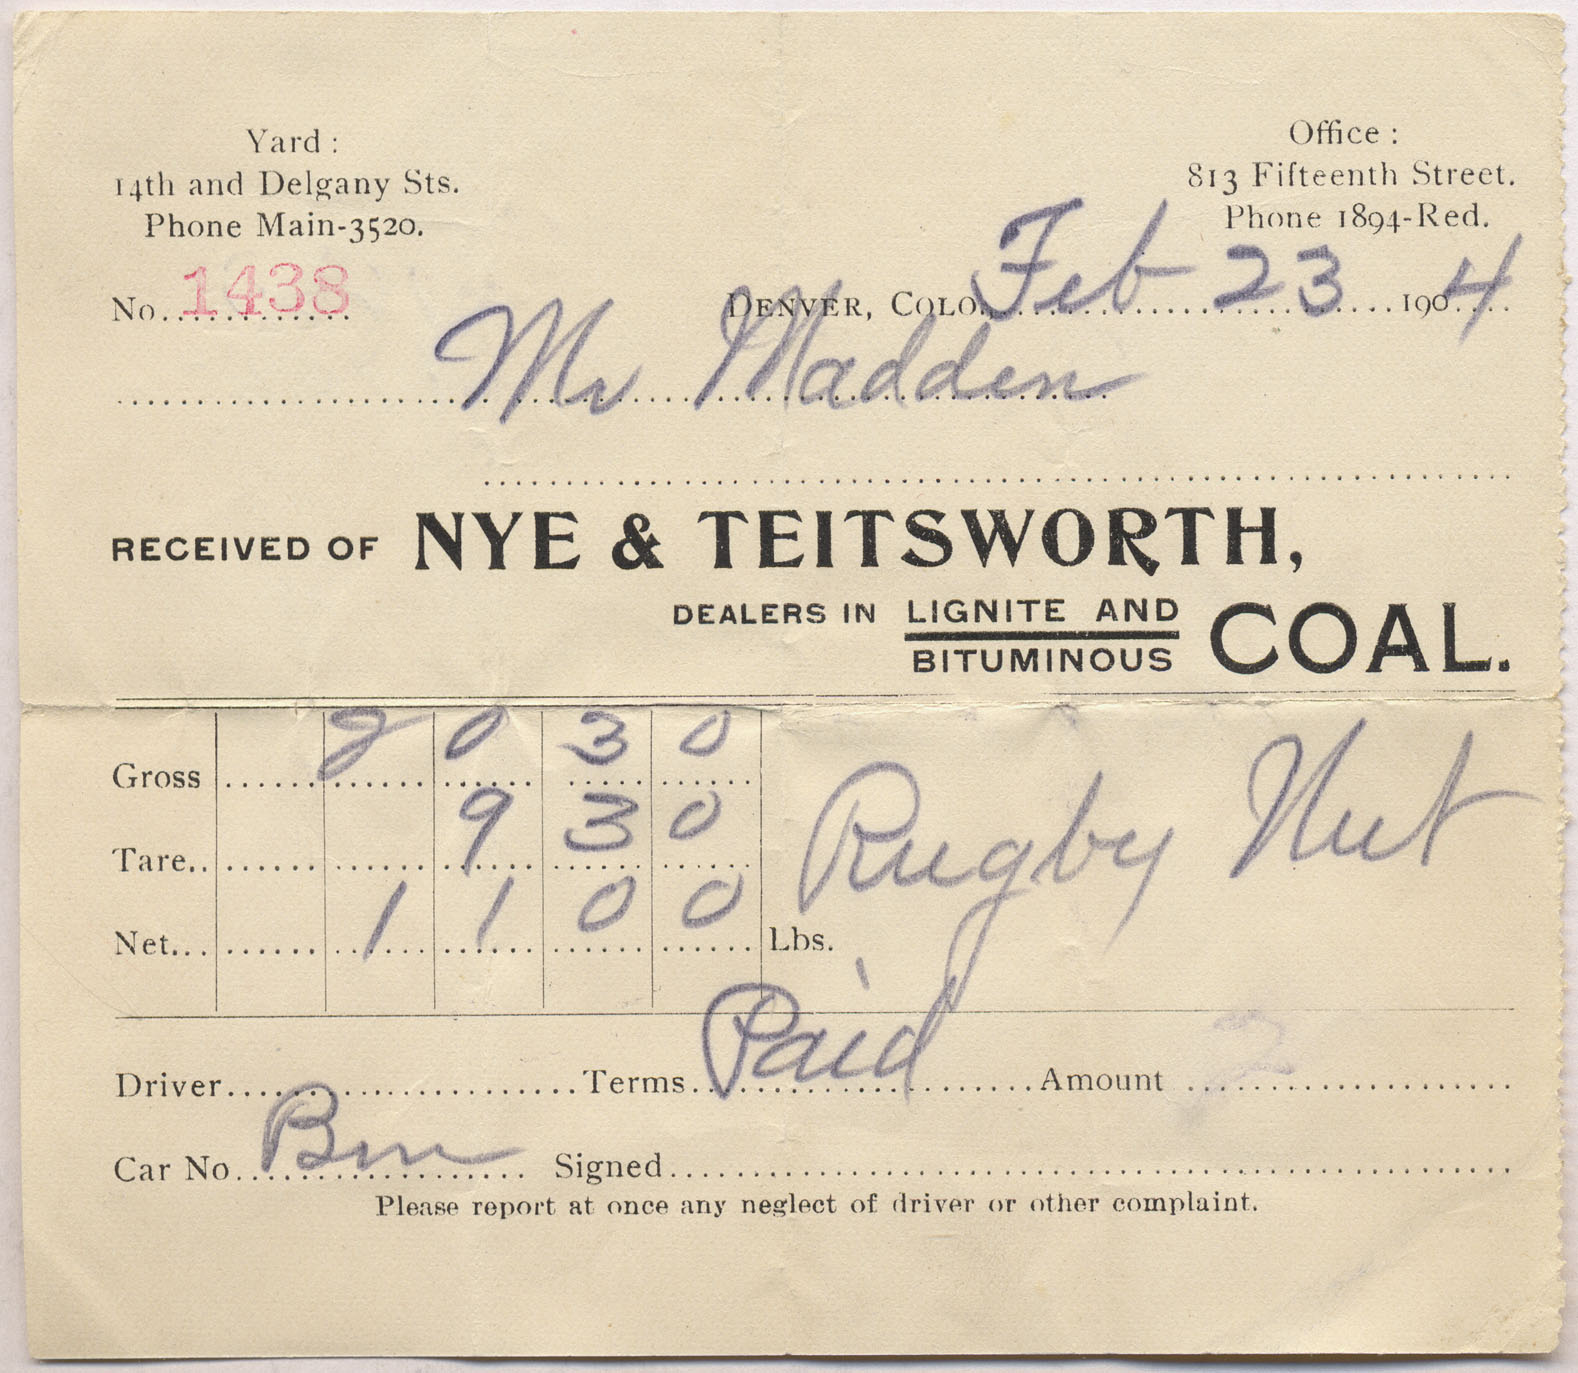 Yard :
14th and Delgany Sts.
Phone Main-3520.
Office :
813 Fifteenth Street.
Phone 1894-Red.
No. 1438
DENVER, COLO. Feb 23 1904
Mr Madden
RECEIVED OF NYE & TEITSWORTH,
DEALERS IN LIGNITE AND BITUMINOUS COAL.
Gross 2030
Tare.. 930
Net... 1100 Lbs.
Rugby Nut
Driver Terms. Paid Amount
Car No. Signed
Please report at once any neglect of driver or other complaint.